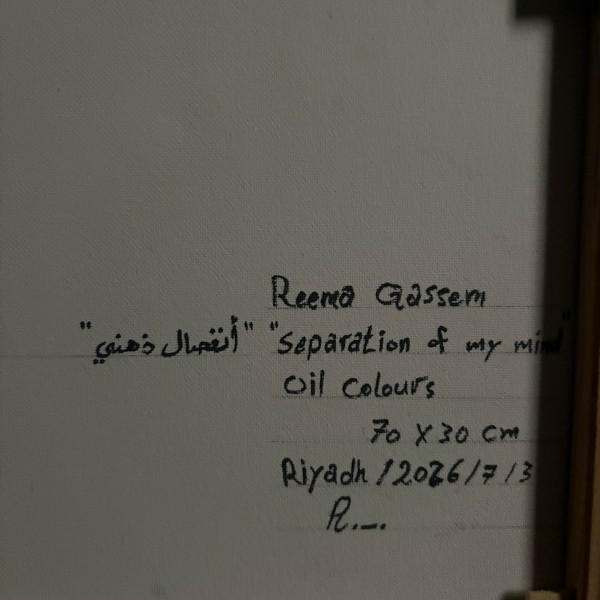 Reema Qassem
"أنفصال ذهني" "Separation of my mind"
Oil Colours
70 X 30 cm
Riyadh / 2026 / 7 / 3
R....